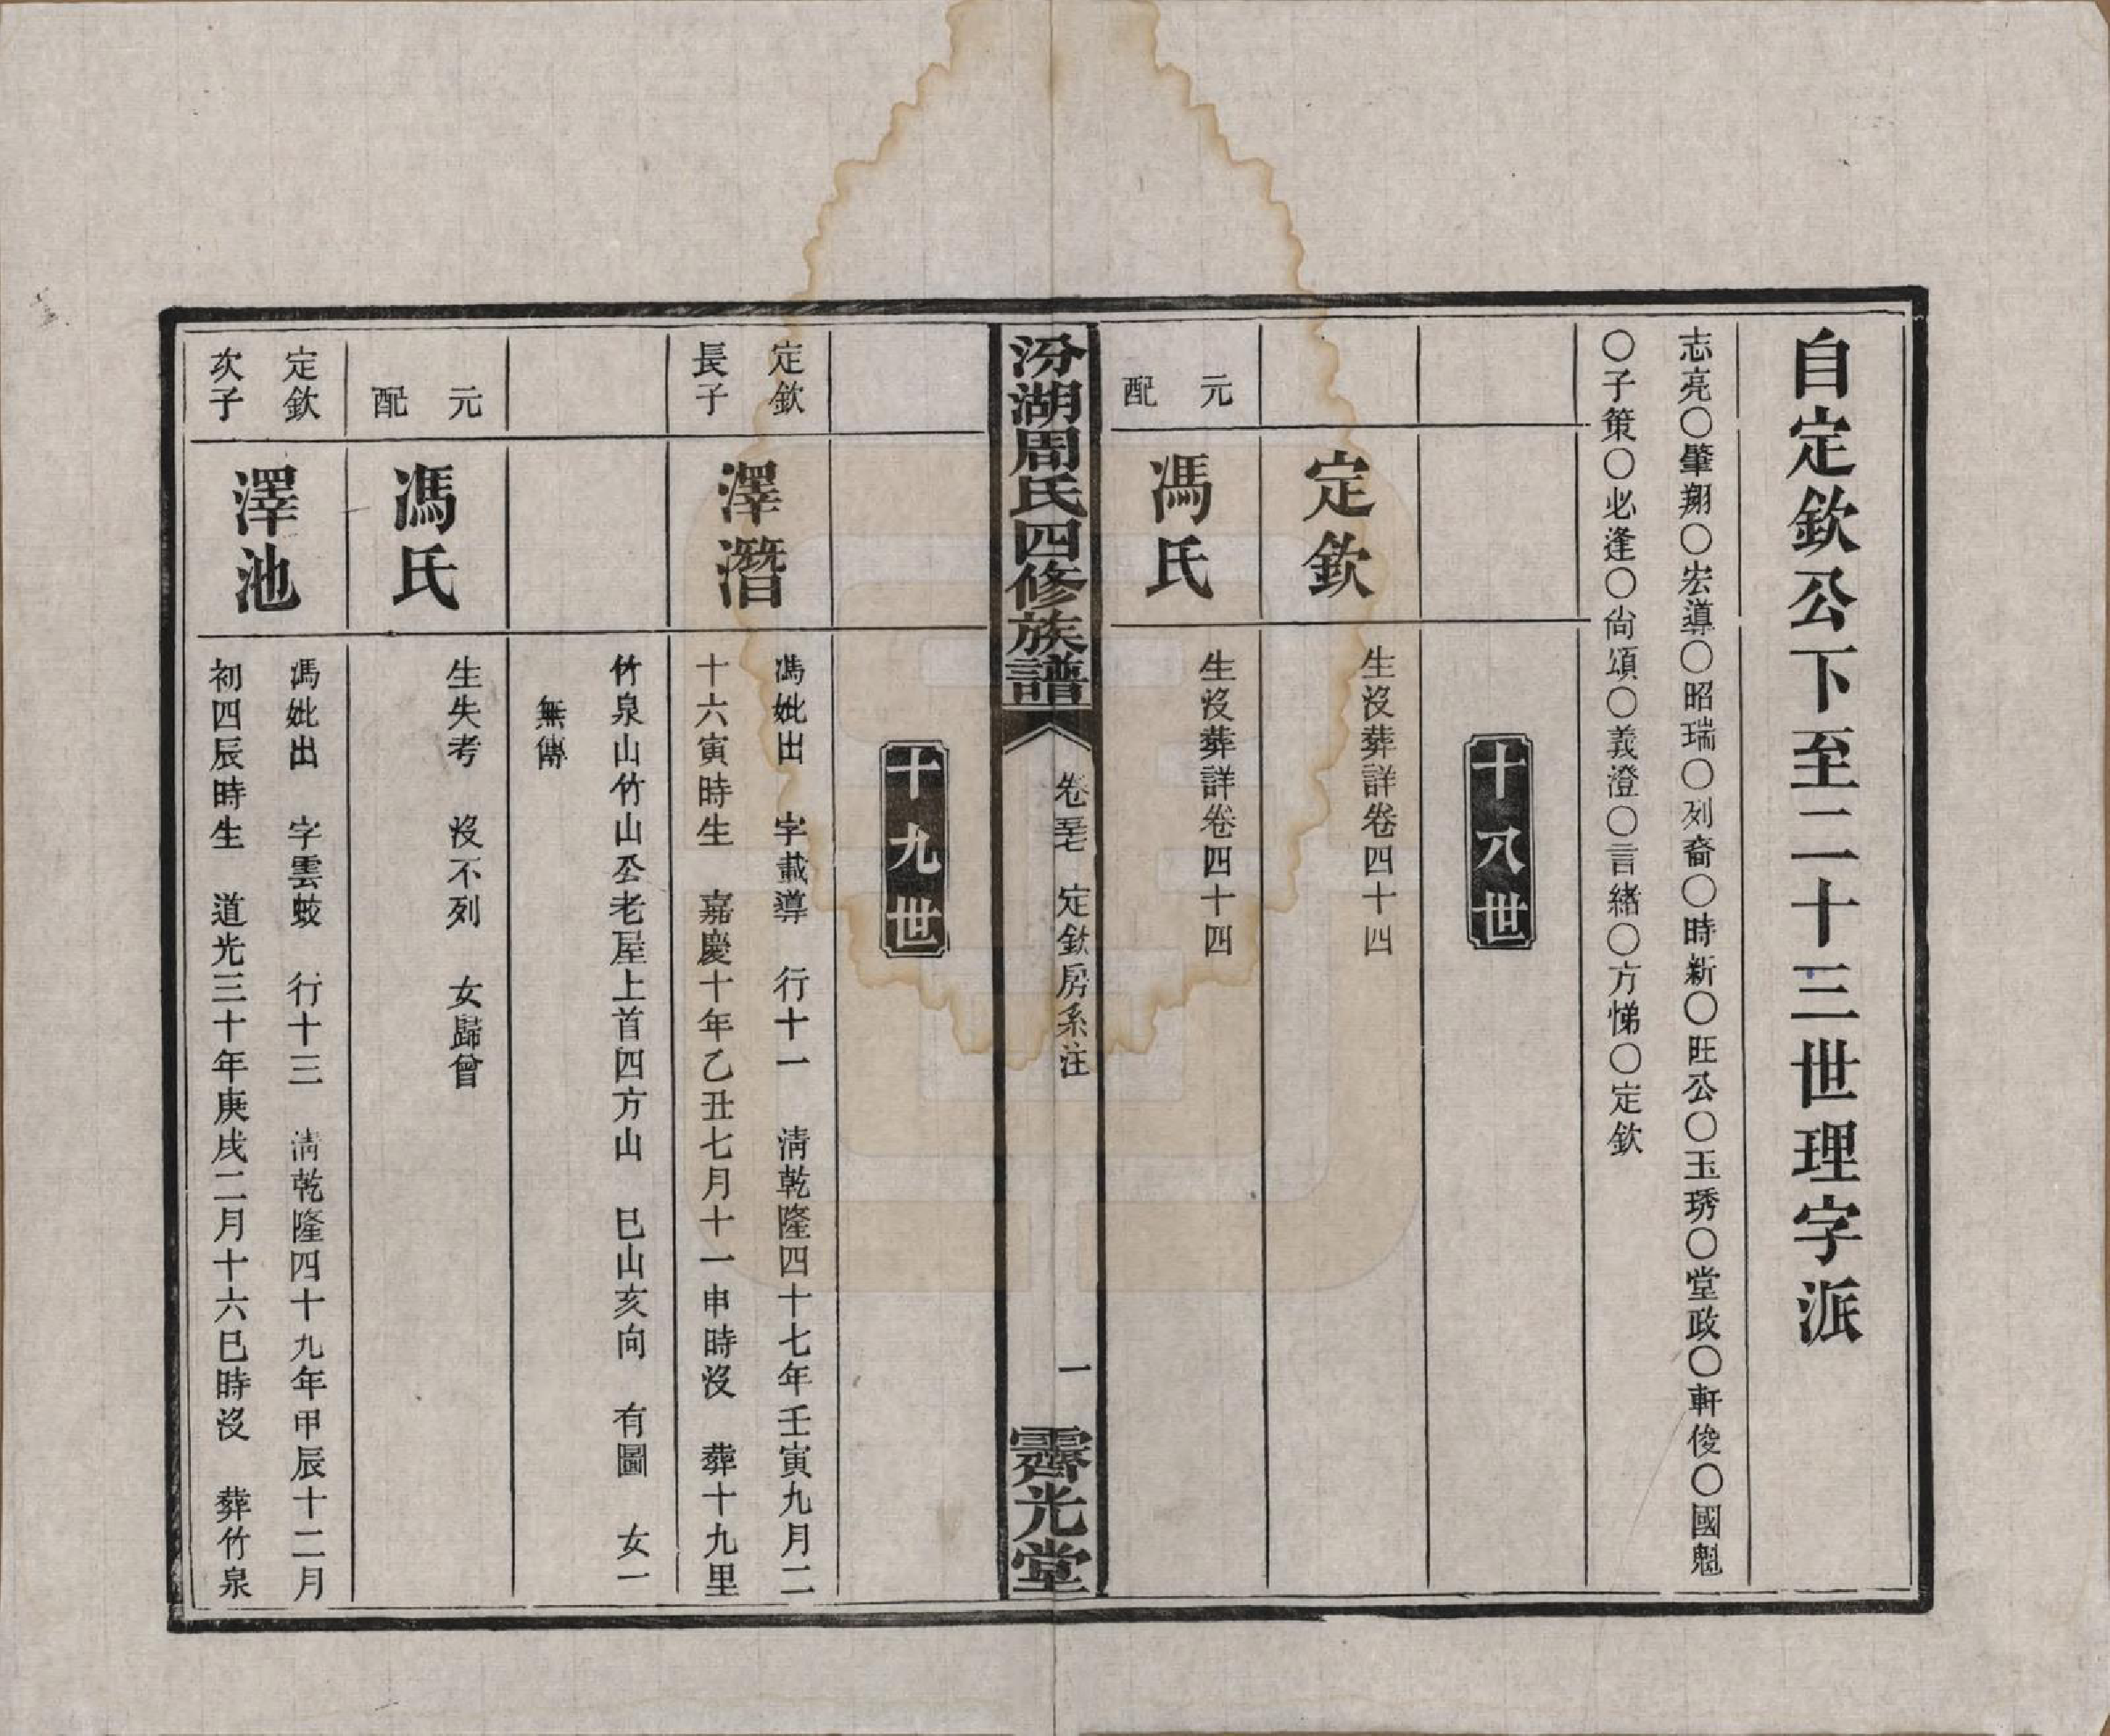 自定欽公下至二十三世理字派
志亮〇肇翔〇宏導〇昭瑞〇列裔〇時新〇旺公〇玉琇〇堂政〇軒俊〇國魁
〇子策〇必逢〇尙頌〇義澄〇言緒〇方悌〇定欽
十八世
定欽
生沒葬詳卷四十四
元配
馮氏
生沒葬詳卷四十四
汾湖周氏四修族譜
卷五十七 定欽房系注
一
霽光堂
十九世
定欽長子
澤潛
馮妣出 字載導 行十一 淸乾隆四十七年壬寅九月二
十六寅時生 嘉慶十年乙丑七月十一申時沒 葬十九里
竹泉山竹山坙老屋上首四方山 巳山亥向 有圖 女一
無傳
元配
馮氏
生失考 沒不列 女歸曾
定欽次子
澤池
馮妣出 字雲蛟 行十三 淸乾隆四十九年甲辰十二月
初四辰時生 道光三十年庚戌二月十六巳時沒 葬竹泉